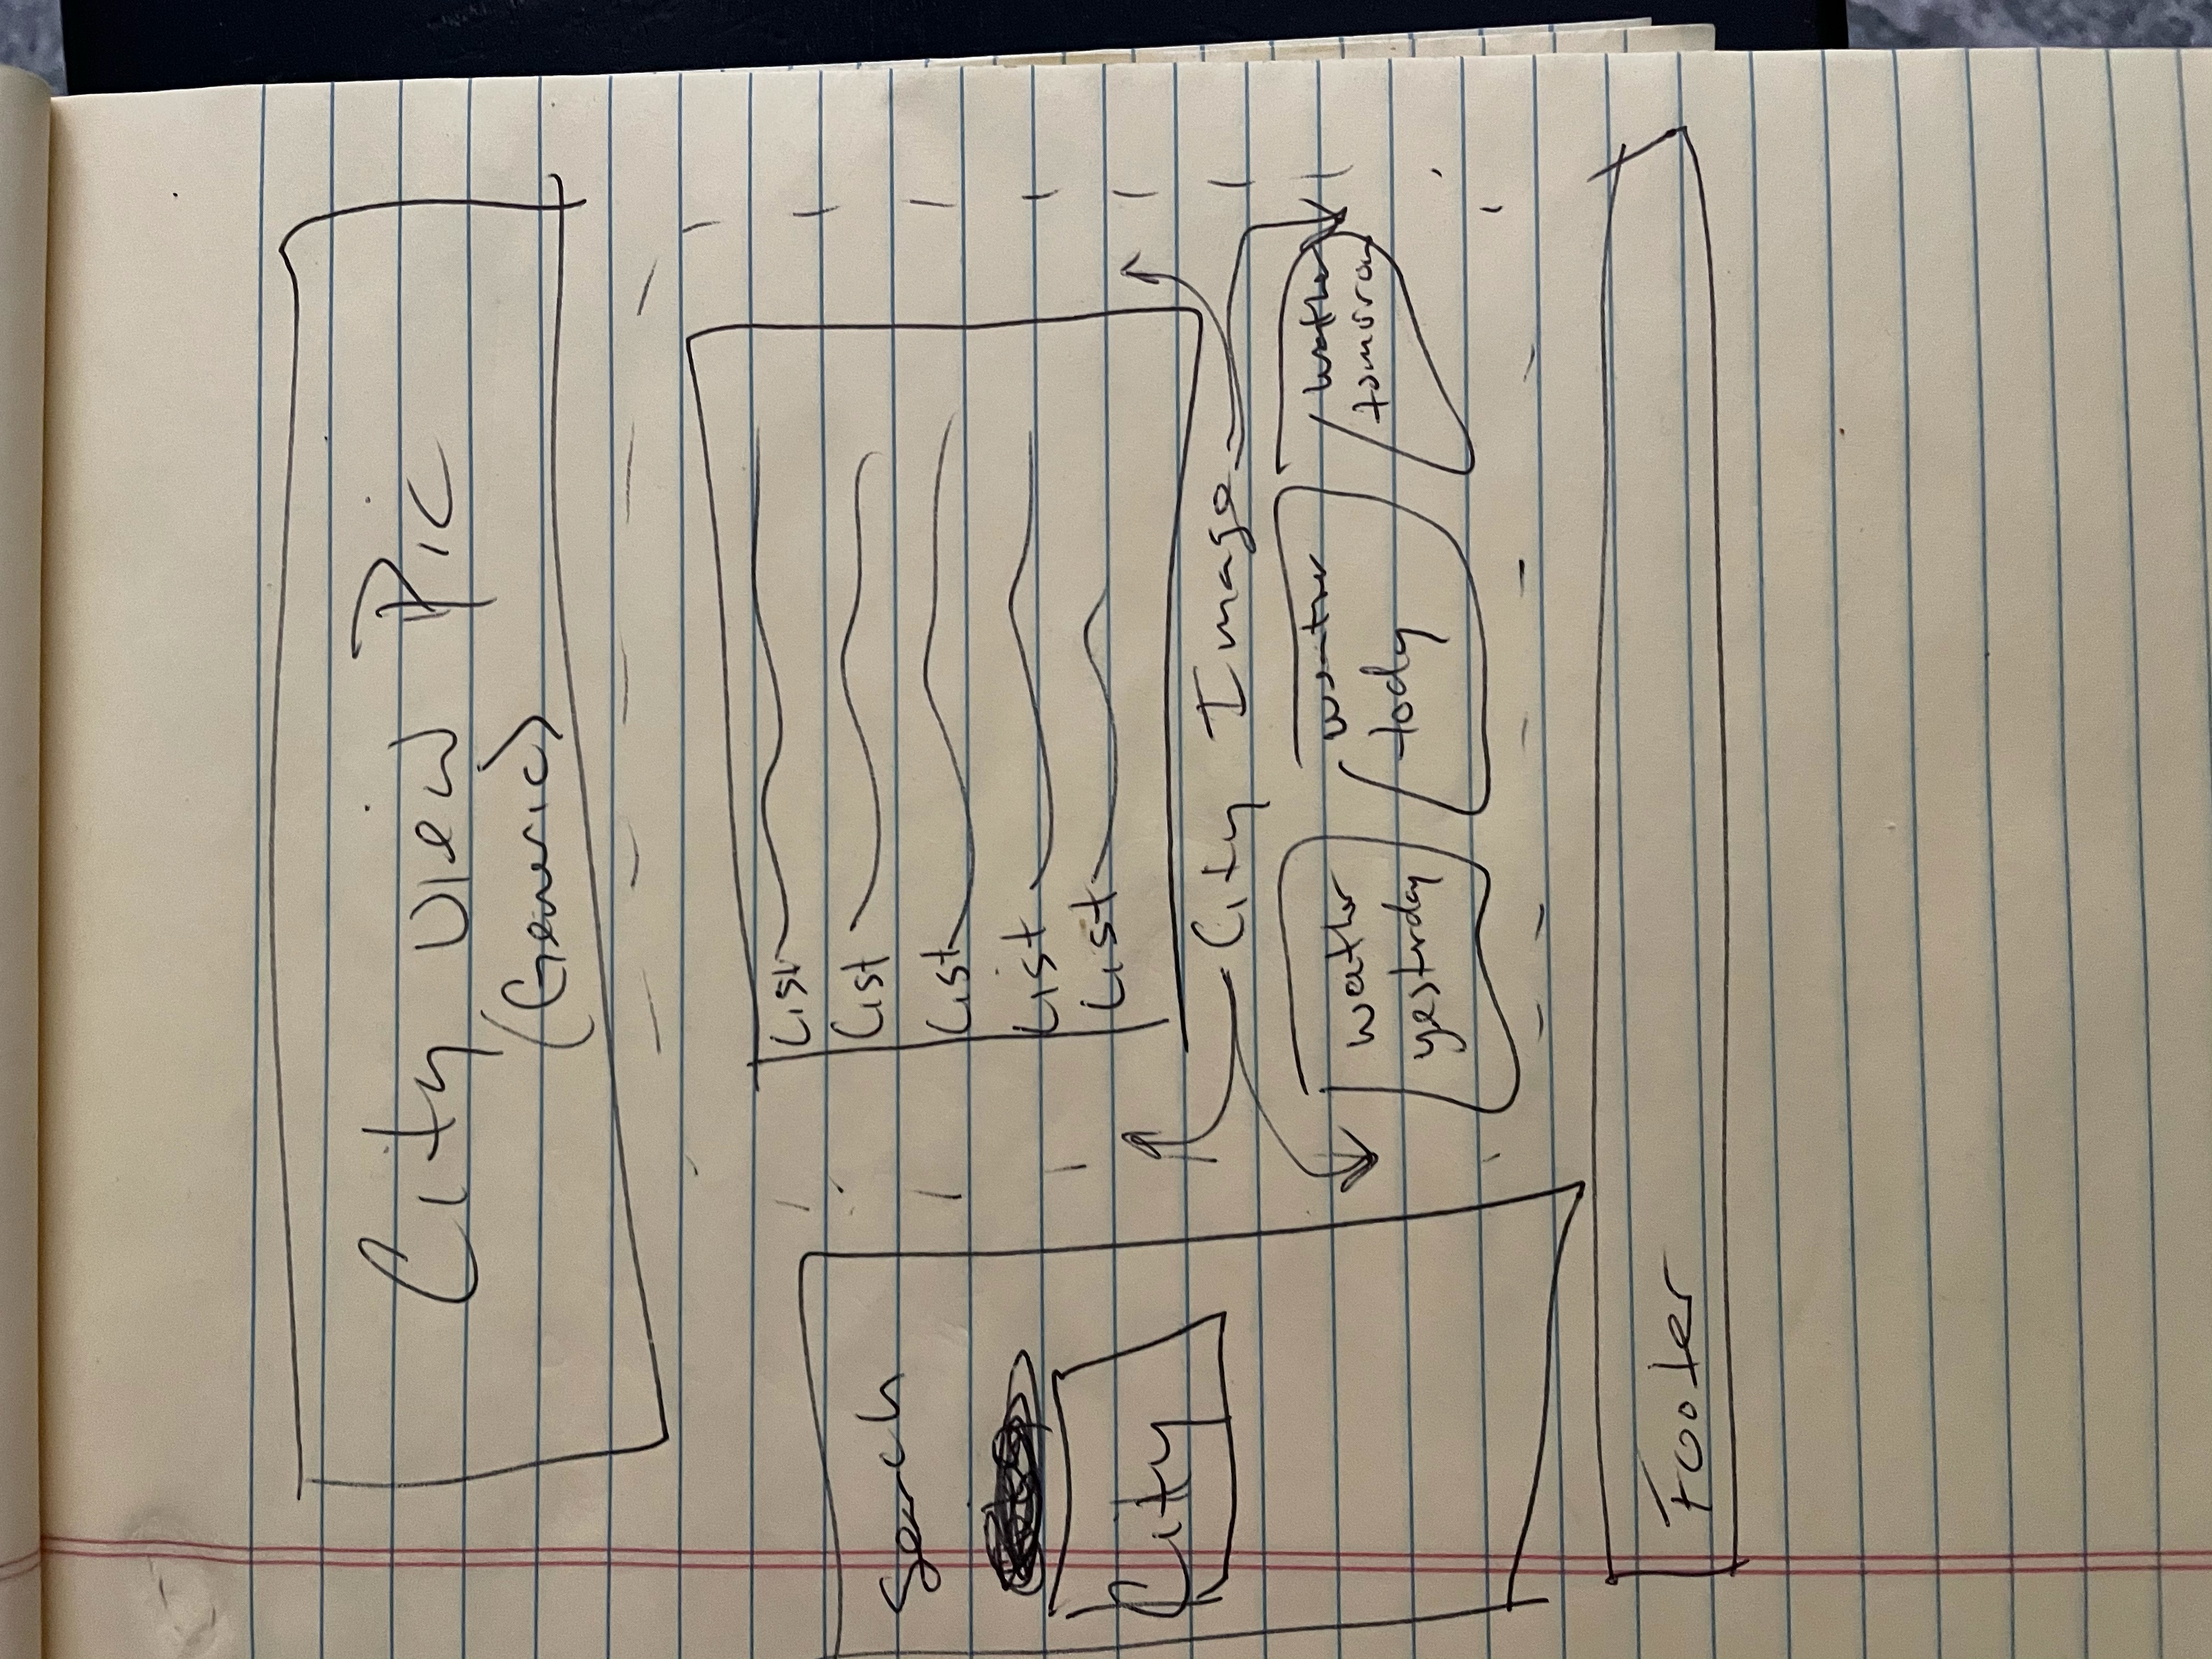 City View Pic
(Generic)
Search
City
List
List
List
List
List
City Image
weather
yesterday
weather
today
weather
tomorrow
Footer